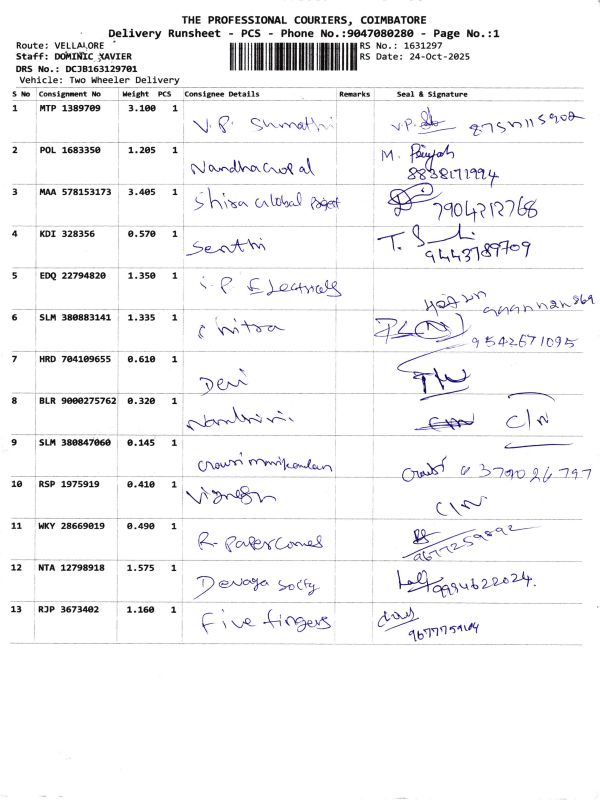 THE PROFESSIONAL COURIERS, COIMBATORE
Delivery Runsheet - PCS - Phone No.:9047080280 - Page No.:1
Route: VELLALORE RS No.: 1631297
Staff: DOMINIC XAVIER RS Date: 24-Oct-2025
DRS No.: DCJB163129701
Vehicle: Two Wheeler Delivery
S No Consignment No Weight PCS Consignee Details Remarks Seal & Signature
1 MTP 1389709 3.100 1 V.P. Sumathi V.P.
2 POL 1683350 1.205 1 Nandhagopal M.
8838171994
3 MAA 578153173 3.405 1 Shiva Global 7904212768
4 KDI 328356 0.570 1 Senthi T.
9443789709
5 EDQ 22794820 1.350 1 I.P Electricals
6 SLM 380883141 1.335 1 Chitra
9542671095
7 HRD 704109655 0.610 1 Devi
8 BLR 9000275762 0.320 1 Nandhini C/N
9 SLM 380847060 0.145 1 Gowri manikandan
10 RSP 1975919 0.410 1 Vignesh C/N
11 WKY 28669019 0.490 1 R. Paper Cones
9677259892
12 NTA 12798918 1.575 1 9994622024.
13 RJP 3673402 1.160 1 Five fingers